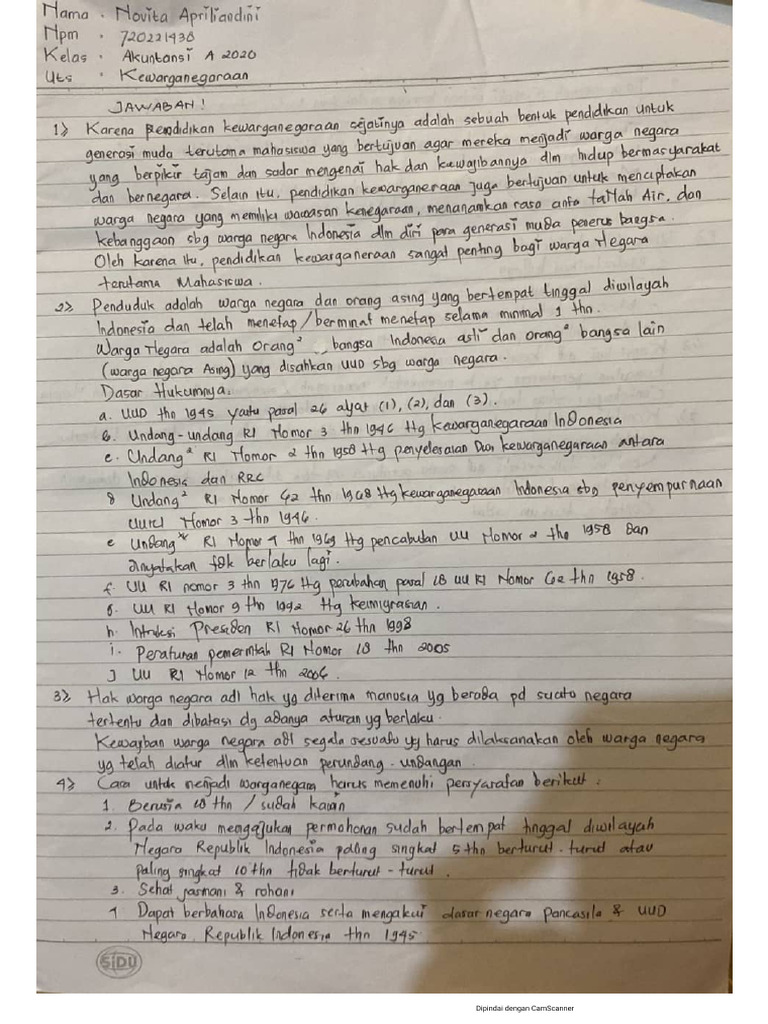 Nama . Novita Apriliandini
Npm . 720221438
Kelas . Akuntansi A 2020
Uts . Kewarganegaraan
JAWABAN !
1) Karena Pendidikan kewarganegaraan sejatinya adalah sebuah bentuk pendidikan untuk
generasi muda terutama mahasiswa yang bertujuan agar mereka menjadi warga negara
yang berpikir tajam dan sadar mengenai hak dan kewajibannya dlm hidup bermasyarakat
dan bernegara. Selain itu, pendidikan kewarganeraan juga bertujuan untuk menciptakan
warga negara yang memiliki wawasan kenegaraan, menanamkan rasa cinta tanah Air, dan
kebanggaan sbg warga negara Indonesia dlm diri para generasi muda penerus bangsa.
Oleh karena itu, pendidikan kewarganeraan sangat penting bagi warga Negara
terutama Mahasiswa.
2) Penduduk adalah warga negara dan orang asing yang bertempat tinggal diwilayah
Indonesia dan telah menetap/berminat menetap selama minimal 1 thn.
Warga Negara adalah Orang² bangsa Indonesia asli dan orang² bangsa lain
(warga negara Asing) yang disahkan UUD sbg warga negara.
Dasar Hukumnya:
a. UUD thn 1945 yaitu pasal 26 ayat (1), (2), dan (3).
b. Undang-undang RI Nomor 3 thn 1946 ttg Kewarganegaraan Indonesia
c. Undang² RI Nomor 2 thn 1958 ttg penyelesaian Dwi kewarganegaraan antara
Indonesia dan RRC
d Undang² RI Nomor 62 thn 1968 ttg kewarganegaraan Indonesia sbg penyempurnaan
Nomor 3 thn 1946.
e Undang² RI Nomor 4 thn 1969 ttg pencabutan UU Nomor 2 thn 1958 dan
dinyatakan tdk berlaku lagi.
f. UU RI nomor 3 thn 1976 ttg perubahan pasal 18 UU RI Nomor 62 thn 1958.
g. UU RI Nomor 9 thn 1992 ttg Keimigrasian.
h. Intruksi Presiden RI Nomor 26 thn 1998
i. Peraturan pemerintah RI Nomor 18 thn 2005
J UU RI Nomor 12 thn 2006.
3) Hak warga negara adl hak yg diterima manusia yg berada pd suatu negara
tertentu dan dibatasi dg adanya aturan yg berlaku.
Kewajban warga negara adl segala sesuatu yg harus dilaksanakan oleh warga negara
yg telah diatur dlm ketentuan perundang-undangan.
4) Cara untuk menjadi warganegara harus memenuhi persyaratan berikut :
1. Berusia 18 thn / sudah kawin
2. Pada waku mengajukan permohonan sudah bertempat tinggal diwilayah
Negara Republik Indonesia paling singkat 5 thn berturut-turut atau
paling singkat 10 thn tidak berturut-turut.
3. Sehat jasmani & rohani
4 Dapat berbahasa Indonesia serta mengakui dasar negara Pancasila & UUD
Negara Republik Indonesia thn 1945
SIDU
Dipindai dengan CamScanner